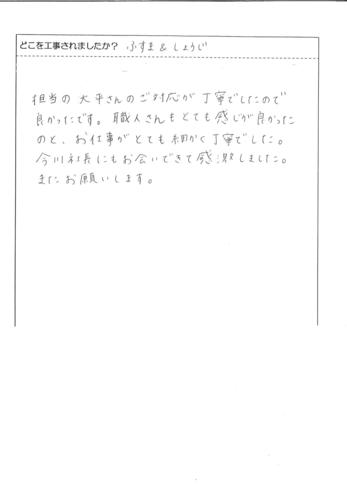 どこを工事されましたか? ふすま & しょうじ
担当の大平さんのご対応が丁寧でしたので
良かったです。職人さんもとても感じが良かった
のと、お仕事がとても細かく丁寧でした。
今川社長にもお会いできて感激しました。
またお願いします。